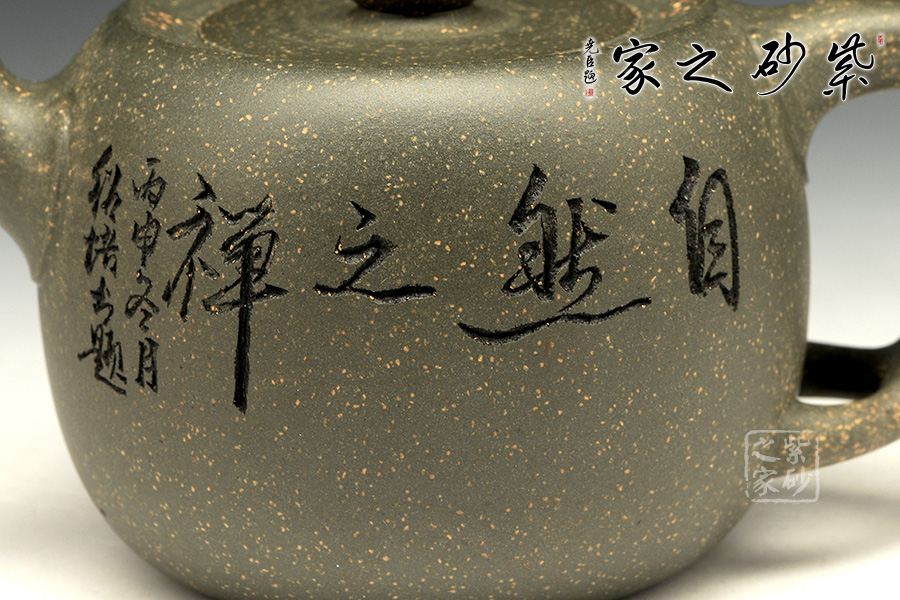 紫砂之家
自然之禅
丙申冬月
紫砂之家